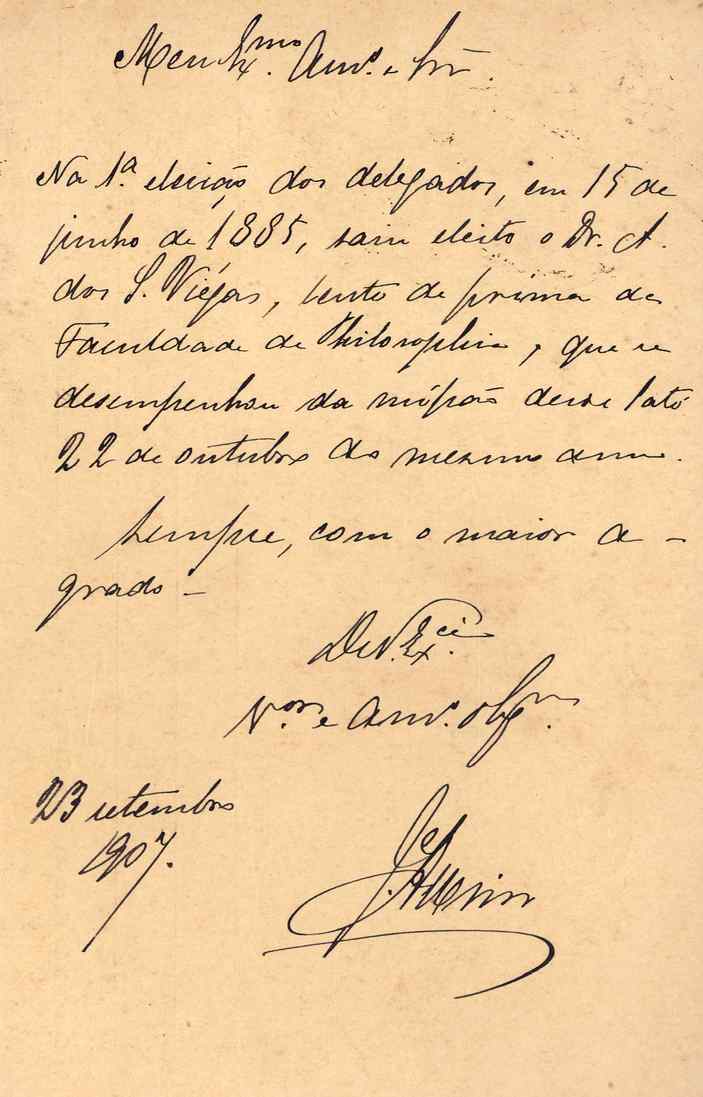 Meu Ex.mo Am.º e Sr.
Na 1.ª eleição dos delegados, em 15 de
junho de 1885, saiu eleito o Dr. A.
dos S. Viégas, lente de prima da
Faculdade de Philosophia, que se
desempenhou da missão desde 1 até
22 de outubro do mesmo anno.
Sempre, com o maior a-
grado –
De V. Ex.cia
V.or e Am.º obg.mo
23 setembro
1907.